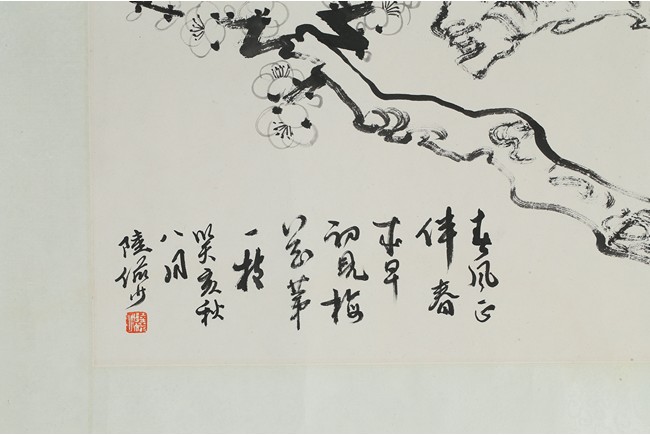 东风正
伴春
來早
初見梅
花第
一枝
癸亥秋
八月
陸儼少